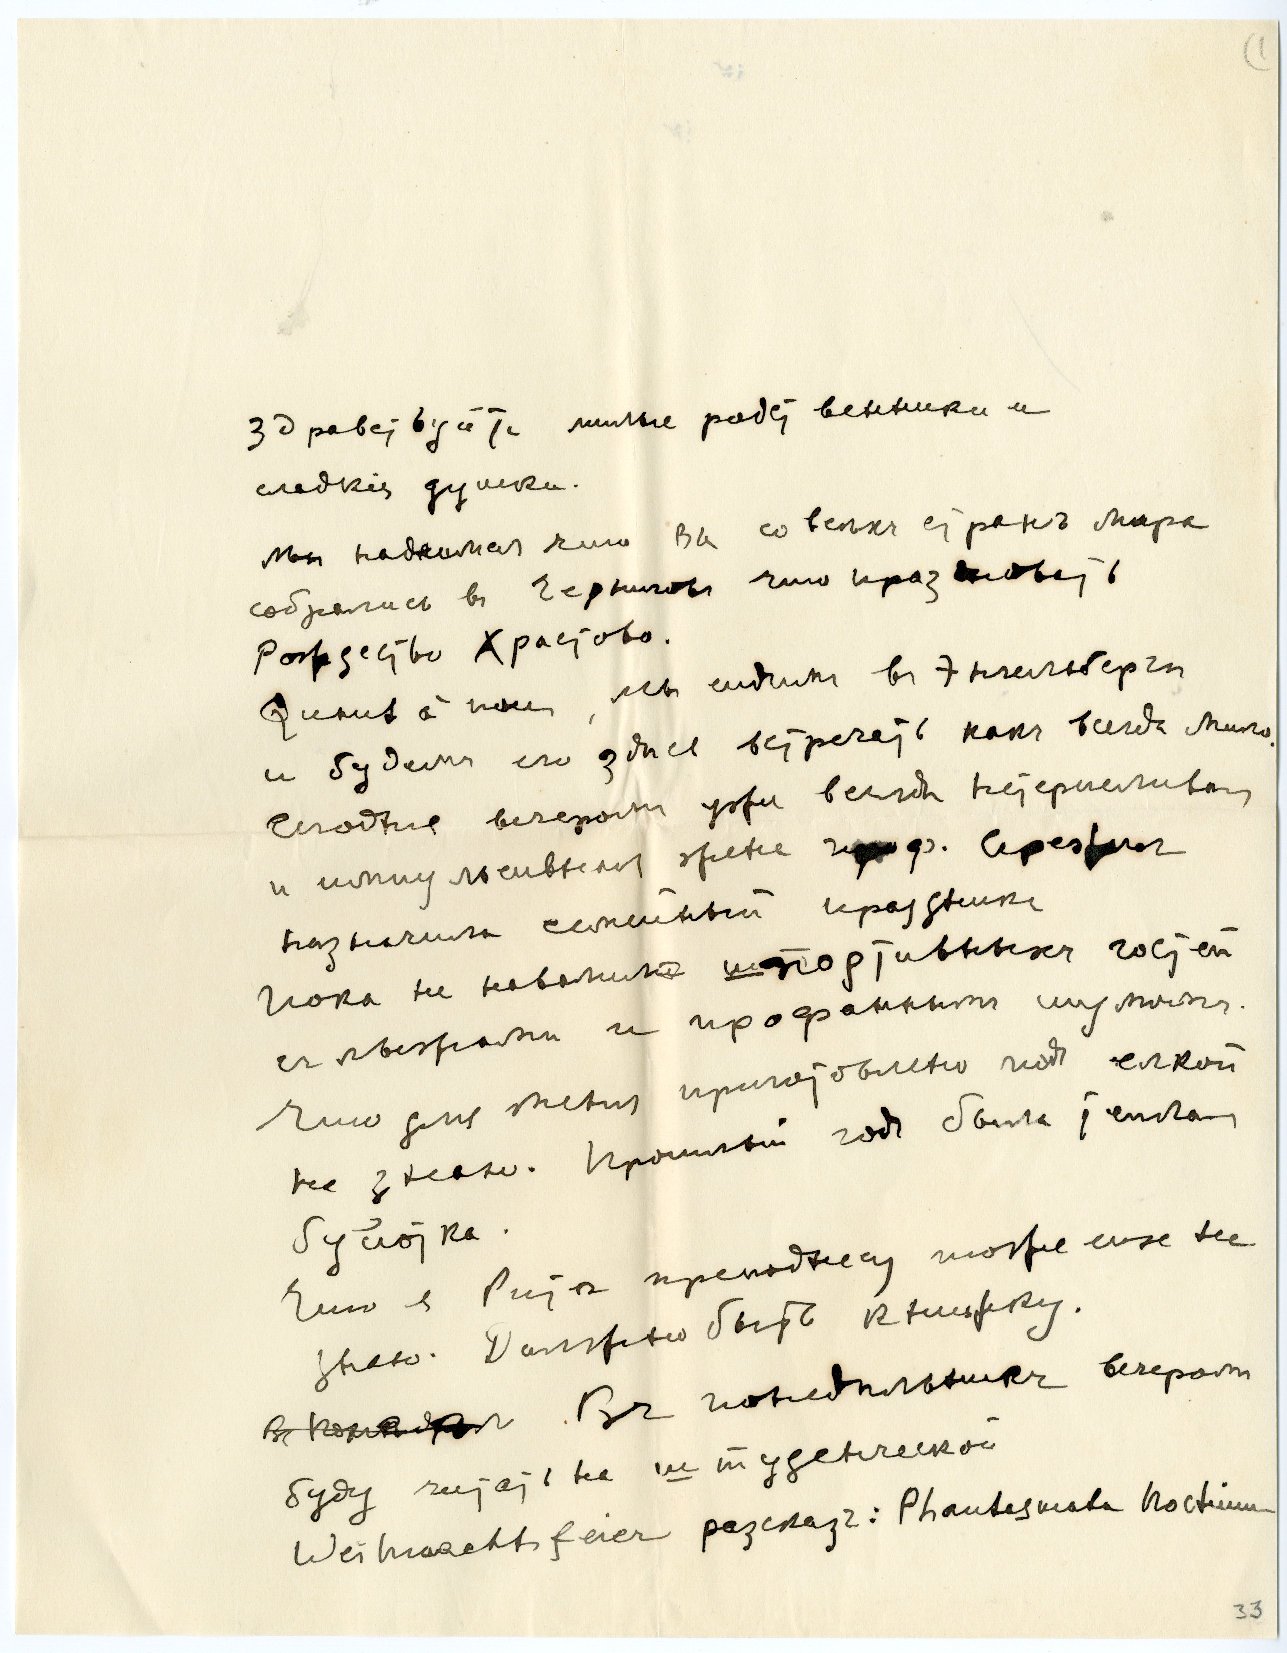 (1
Здравствуйте милые родственники и
сладкія душки.
Мы надеимся что вы со всехъ странъ мира
собрались въ Чернигове что праздновать
Рождество Христово.
Quant à nous, мы сидимъ въ Энгельберге
и будемъ его здесь встречать какъ всегда мило.
Сегодне вечеромъ уже всегда нетерпеливая
и импульсивная жена проф.
назначила семейный праздникъ
пока не навалило шпортивныхъ гостей
съ лыжами и профаннымъ шумомъ.
Что для меня приготовлено подъ елкой
не знаю. Прошлый годъ была теплая
буйотка.
Что я преподнесу тоже еще не
знаю. Должно быть книжку.
Въ понедельникъ вечеромъ
буду читать на штуденческой
Weihnachtsfeier разсказъ: Phantasmata Noctium
33